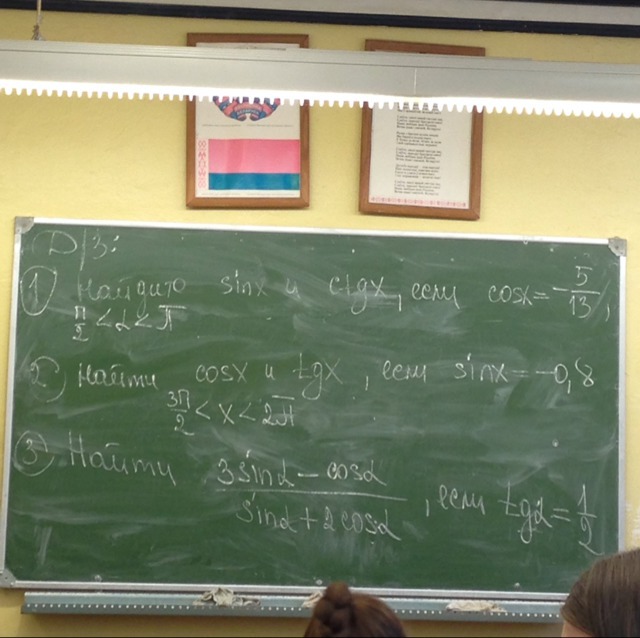 Д/З:
① Найдито sinx и ctgx, если cosx = -5/13,
π/2 < α < π
② Найти cosx и tgx, если sinx = -0,8
3π/2 < x < 2π
③ Найти (3sinα - cosα)/(sinα + 2cosα), если tgα = 1/2